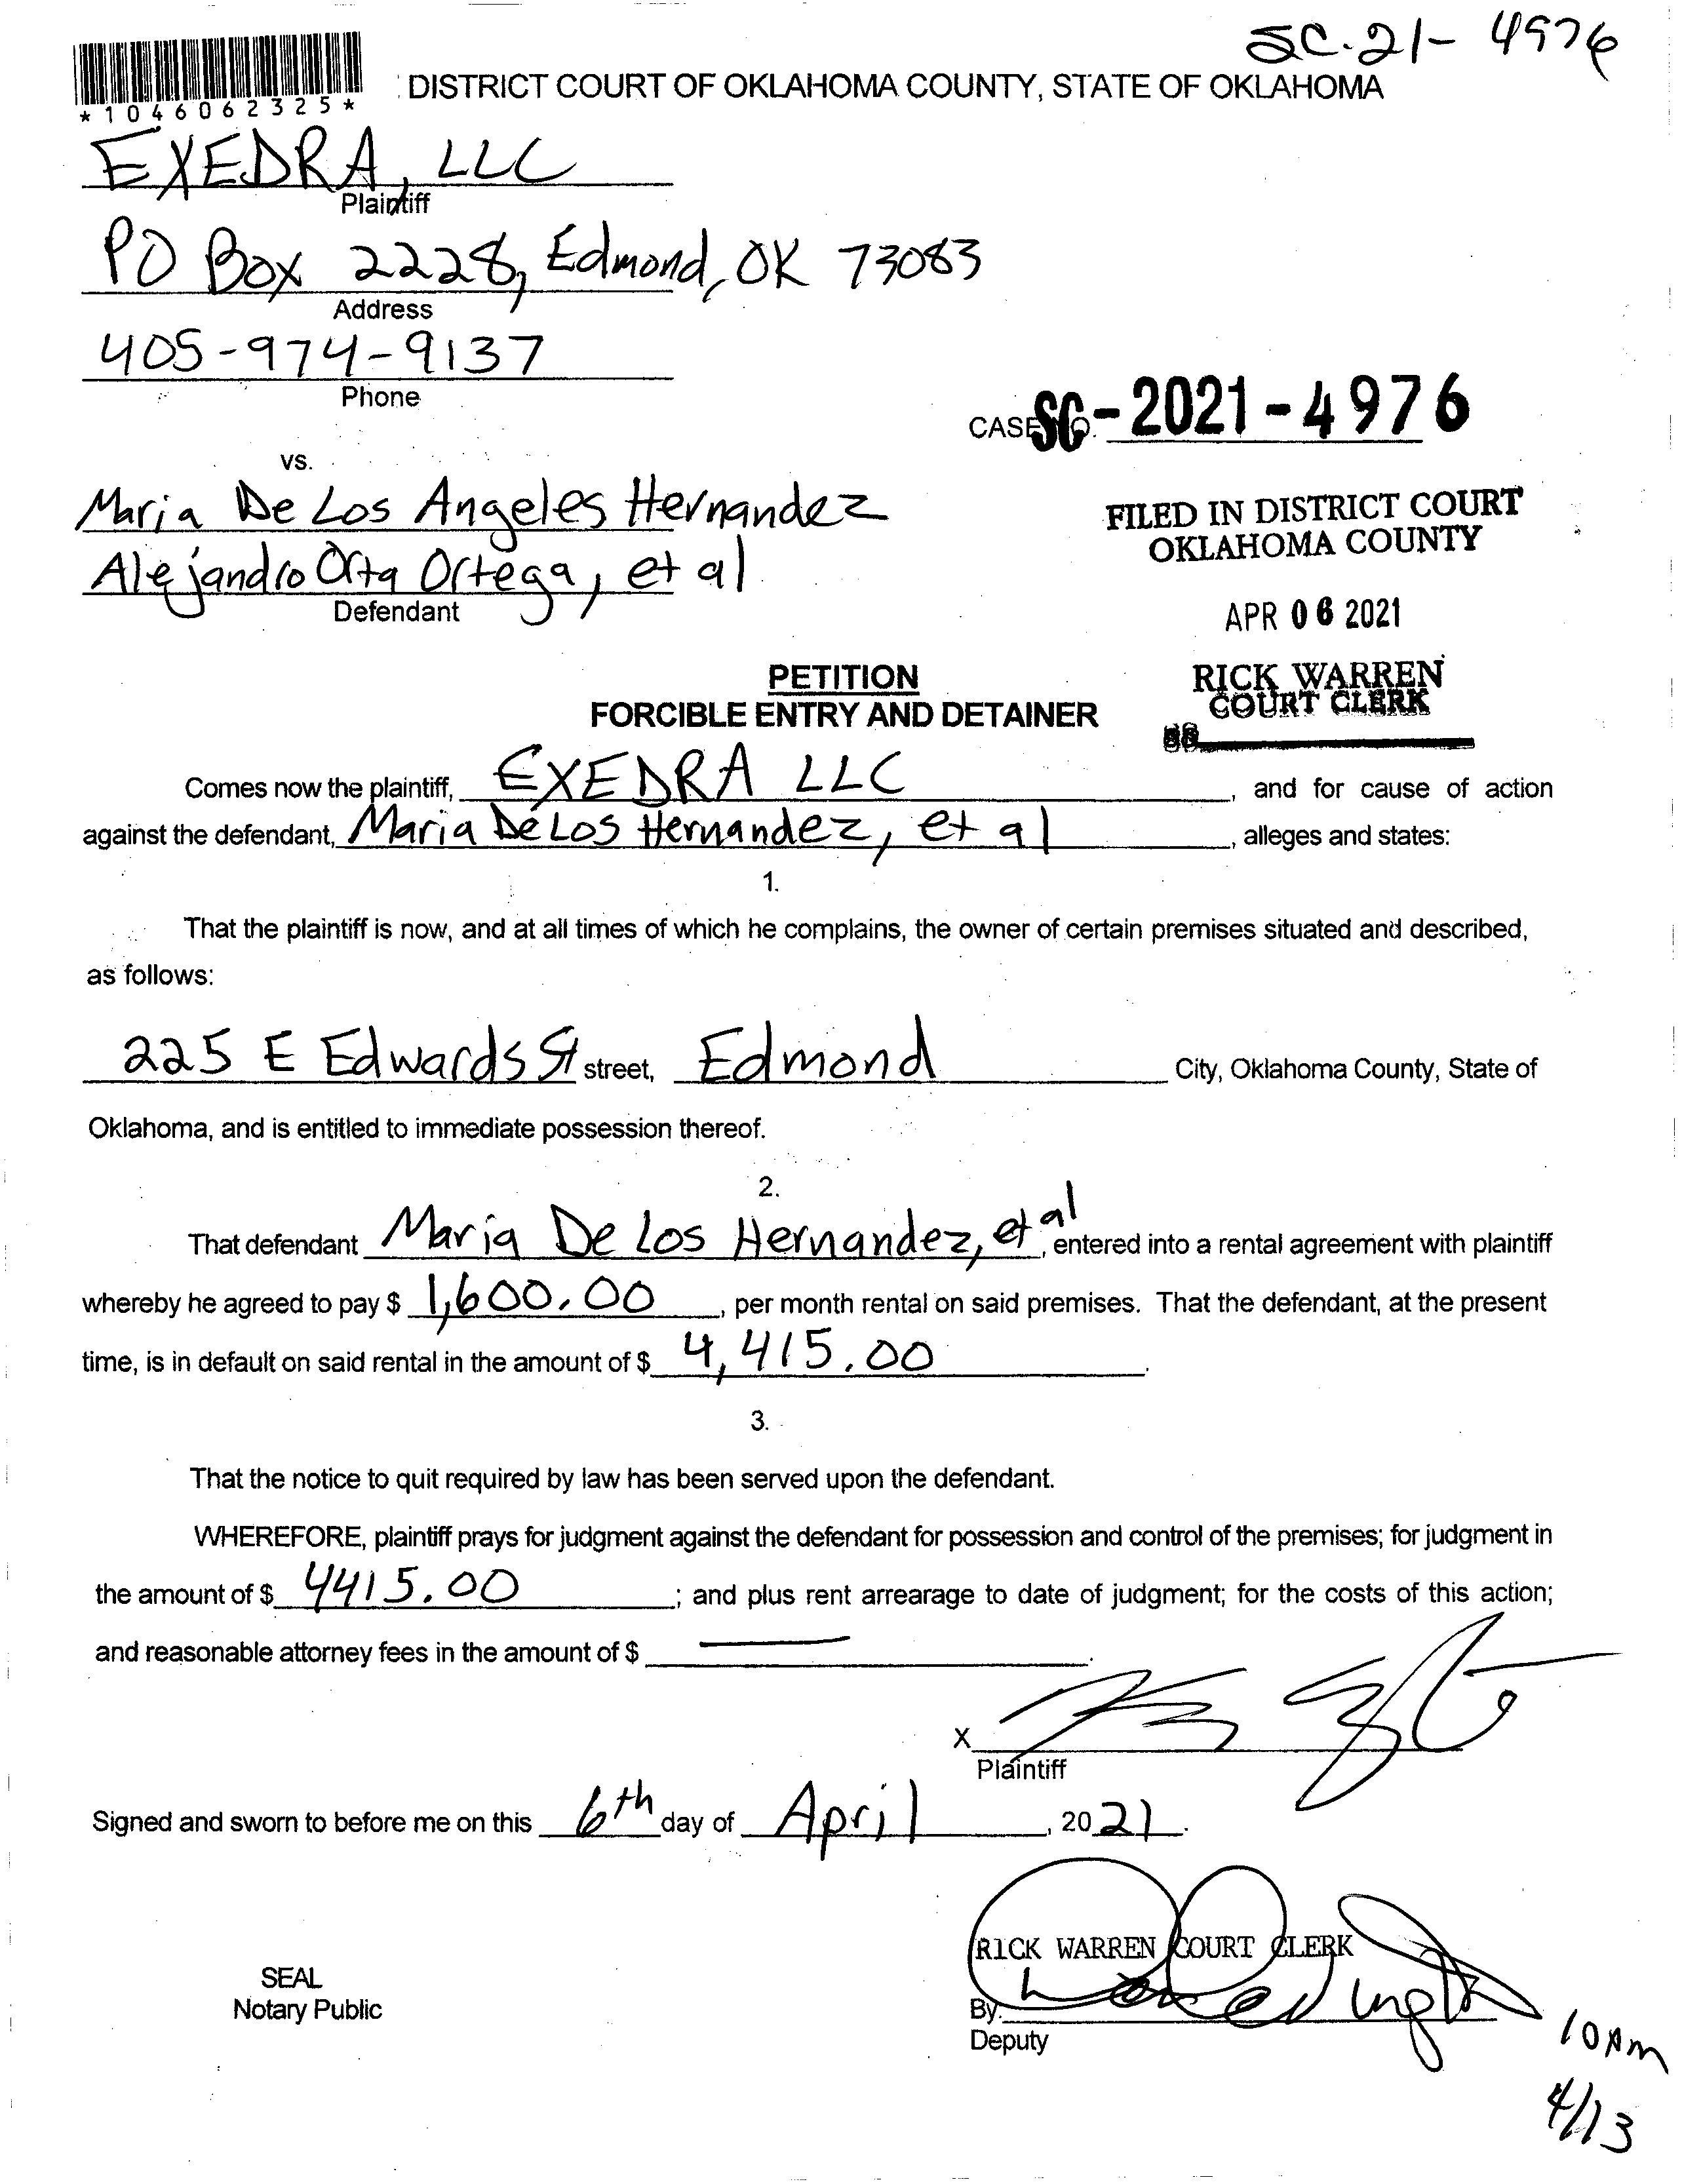 SC-21-4976
*1046062325*
DISTRICT COURT OF OKLAHOMA COUNTY, STATE OF OKLAHOMA
EXEDRA, LLC
Plaintiff
PO Box 2228, Edmond, OK 73083
Address
405-974-9137
Phone
CASE NO. SC-2021-4976
vs.
Maria De Los Angeles Hernandez
Alejandro Orta Ortega, et al
Defendant
FILED IN DISTRICT COURT
OKLAHOMA COUNTY
APR 06 2021
RICK WARREN
COURT CLERK
PETITION
FORCIBLE ENTRY AND DETAINER
Comes now the plaintiff, EXEDRA LLC, and for cause of action
against the defendant, Maria De Los Hernandez, et al, alleges and states:
1.
That the plaintiff is now, and at all times of which he complains, the owner of certain premises situated and described,
as follows:
225 E Edwards St street, Edmond City, Oklahoma County, State of
Oklahoma, and is entitled to immediate possession thereof.
2.
That defendant Maria De Los Hernandez, et al, entered into a rental agreement with plaintiff
whereby he agreed to pay $ 1,600.00, per month rental on said premises. That the defendant, at the present
time, is in default on said rental in the amount of $ 4,415.00.
3.
That the notice to quit required by law has been served upon the defendant.
WHEREFORE, plaintiff prays for judgment against the defendant for possession and control of the premises; for judgment in
the amount of $ 4415.00; and plus rent arrearage to date of judgment; for the costs of this action;
and reasonable attorney fees in the amount of $ —.
X
Plaintiff
Signed and sworn to before me on this 6th day of April, 2021.
RICK WARREN COURT CLERK
SEAL
Notary Public
By.
Deputy
10 AM
4/13